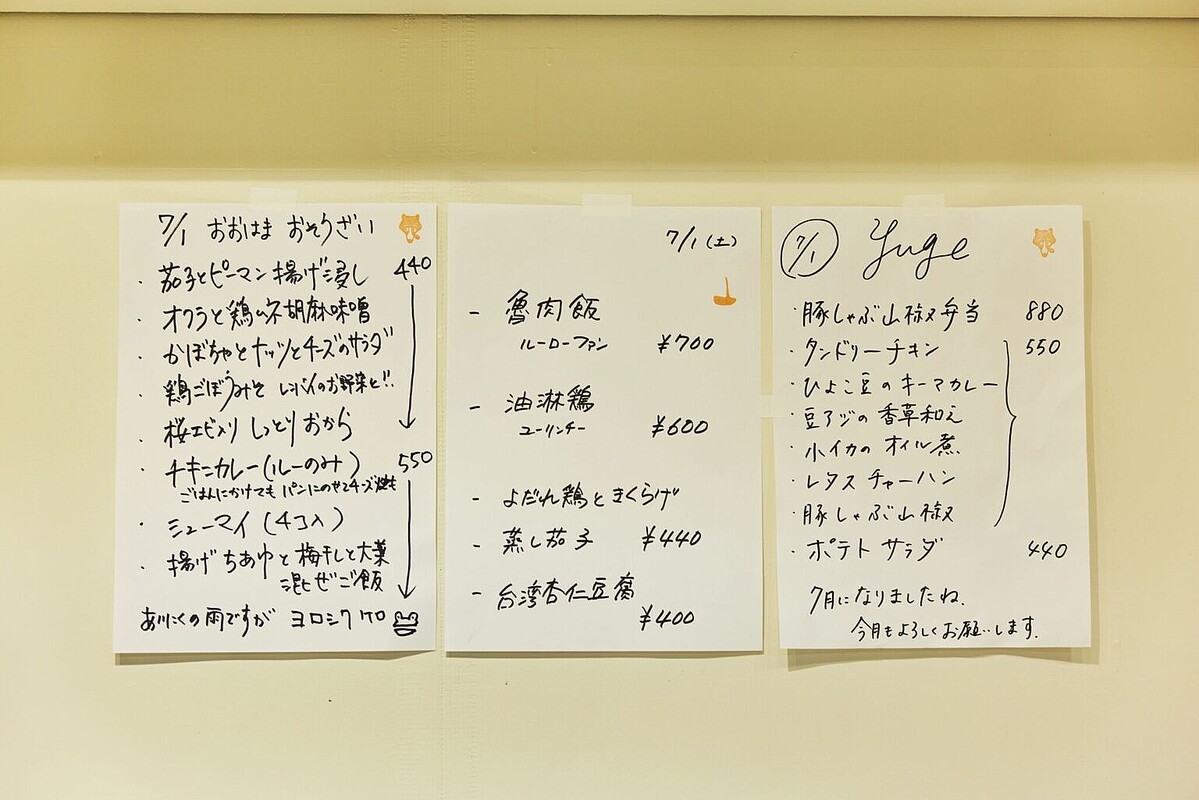 7/1 おおはま おそうざい
・茄子とピーマン揚げ浸し 440
・オクラと鶏ムネ胡麻味噌
・かぼちゃとナッツとチーズのサラダ
・鶏ごぼうみそ レンバイのお野菜と!!
・桜エビ入りしっとりおから
・チキンカレー(ルーのみ) 550
ごはんにかけても パンにのせてチーズ焼も
・シューマイ(4コ入)
・揚げちあゆと梅干しと大葉
混ぜご飯
あいにくの雨ですが ヨロシクケロ
7/1(土)
- 魯肉飯
ルーローファン ¥700
- 油淋鶏
ユーリンチー ¥600
- よだれ鶏ときくらげ
- 蒸し茄子 ¥440
- 台湾杏仁豆腐
¥400
7/1 Yuge
・豚しゃぶ山椒弁当 880
・タンドリーチキン 550
・ひよこ豆のキーマカレー
・豆アジの香草和え
・小イカのオイル煮
・レタスチャーハン
・豚しゃぶ山椒
・ポテトサラダ 440
7月になりましたね.
今月もよろしくお願いします.